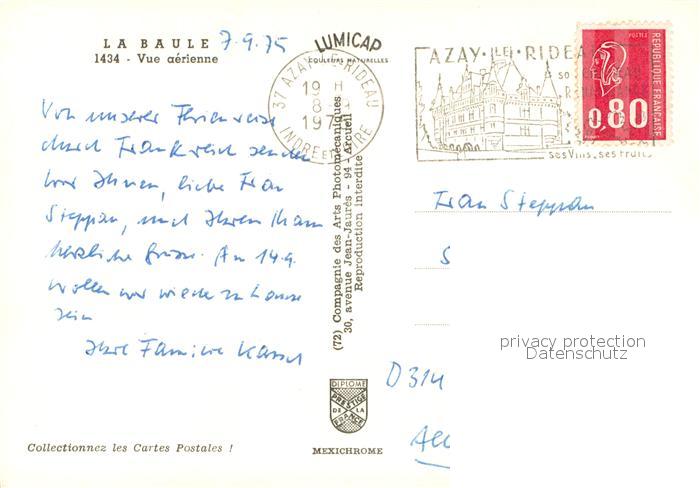 LA BAULE
7.9.75
1434 - Vue aérienne
LUMICAP
COULEURS NATURELLES
Von unserer Ferienreise
durch Frankreich senden
wir Ihnen, liebe Frau
Steppan, und Ihrem Mann
herzliche Grüße. Am 14.9.
wollen wir wieder zu Hause
sein
Ihre Familie Kassel
Collectionnez les Cartes Postales !
(72) Compagnie des Arts Photomécaniques
30, avenue Jean-Jaurès - 94 - Arcueil
Reproduction interdite
DIPLOME
PRESTIGE
DE LA
FRANCE
MEXICHROME
37 AZAY-LE-RIDEAU
19 H
8
197
INDRE et LOIRE
AZAY-LE-RIDEA
SO
ses Vins, ses fruits
POSTES
REPUBLIQUE FRANÇAISE
0,80
Frau Steppan
S
D 314
All
privacy protection
Datenschutz